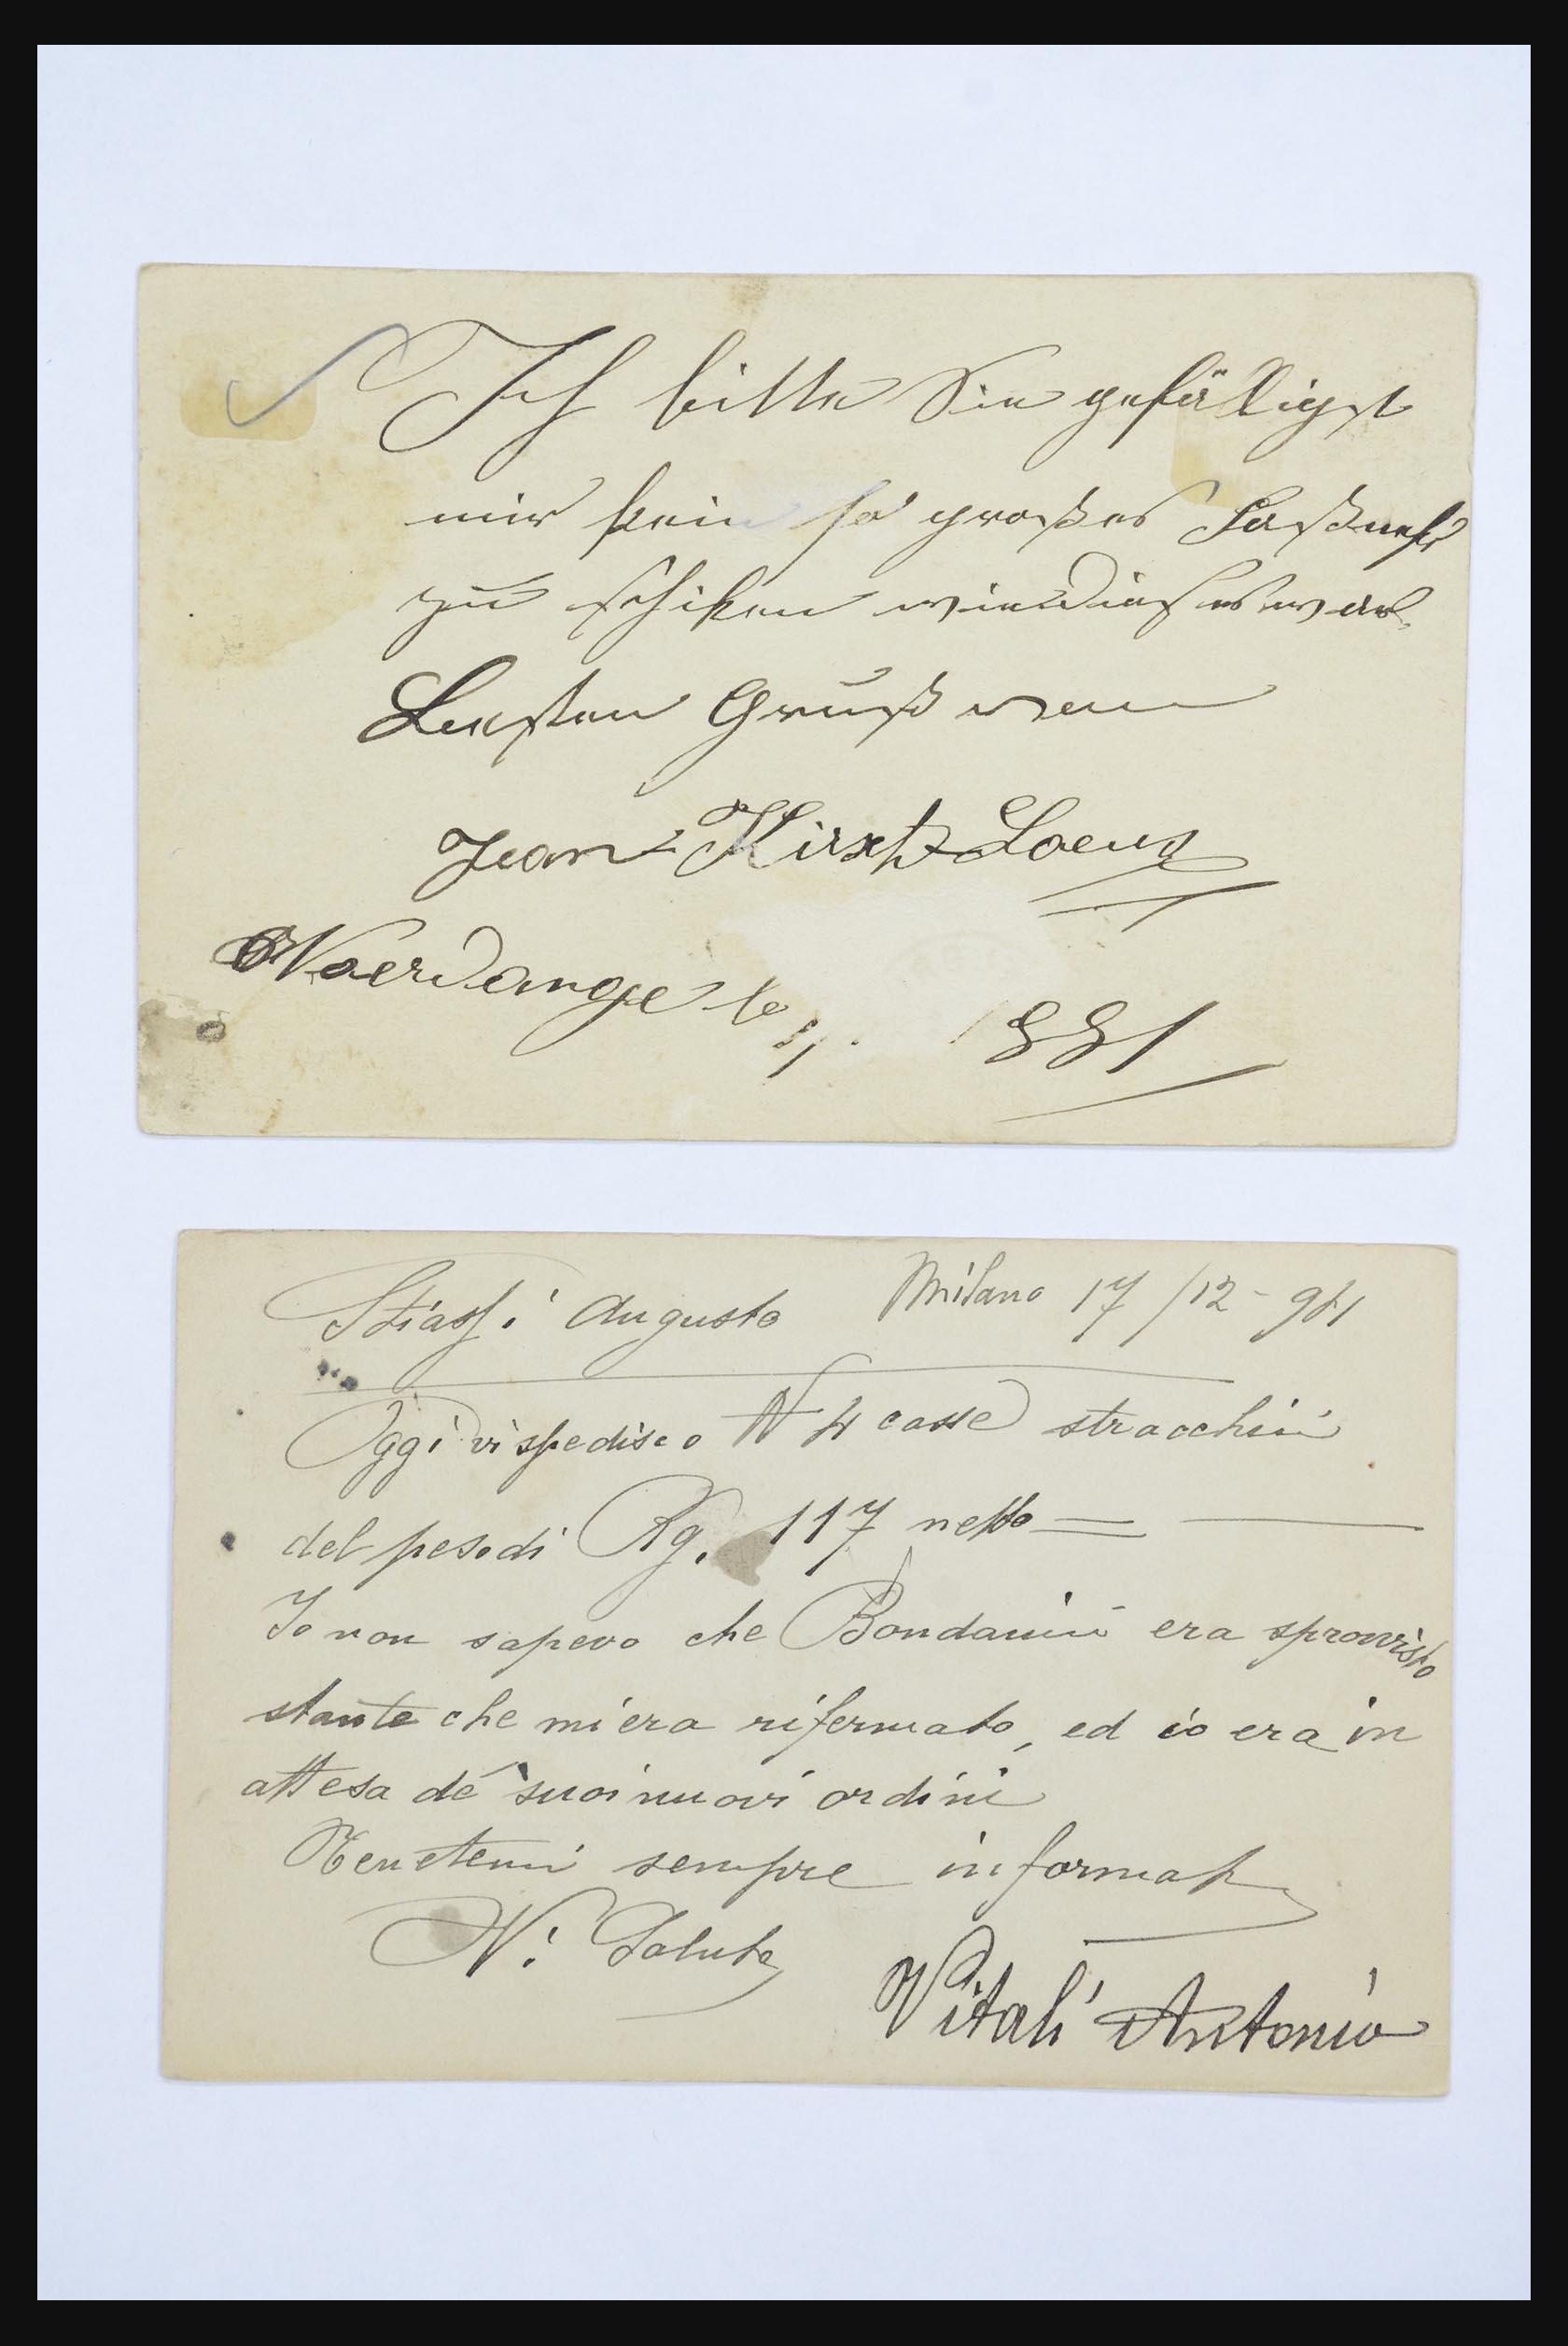 Ich bitte Sie gefälligst
mir kein so großes Faß mehr
zu schiken wie dieses war.
Besten Gruß von
Jean Kirsch-Loenz
Noerdange le 1881
Stiassi Augusto Milano 17/12-94
Oggi vi spedisco N 4 casse stracchini
del peso di Kg. 117 netto
Io non sapevo che Bondanini era sprovvisto
stante che mi era rifermato, ed io era in
attesa de suoi nuovi ordini
Tenetemi sempre informato
Vi Saluto
Vitali Antonio